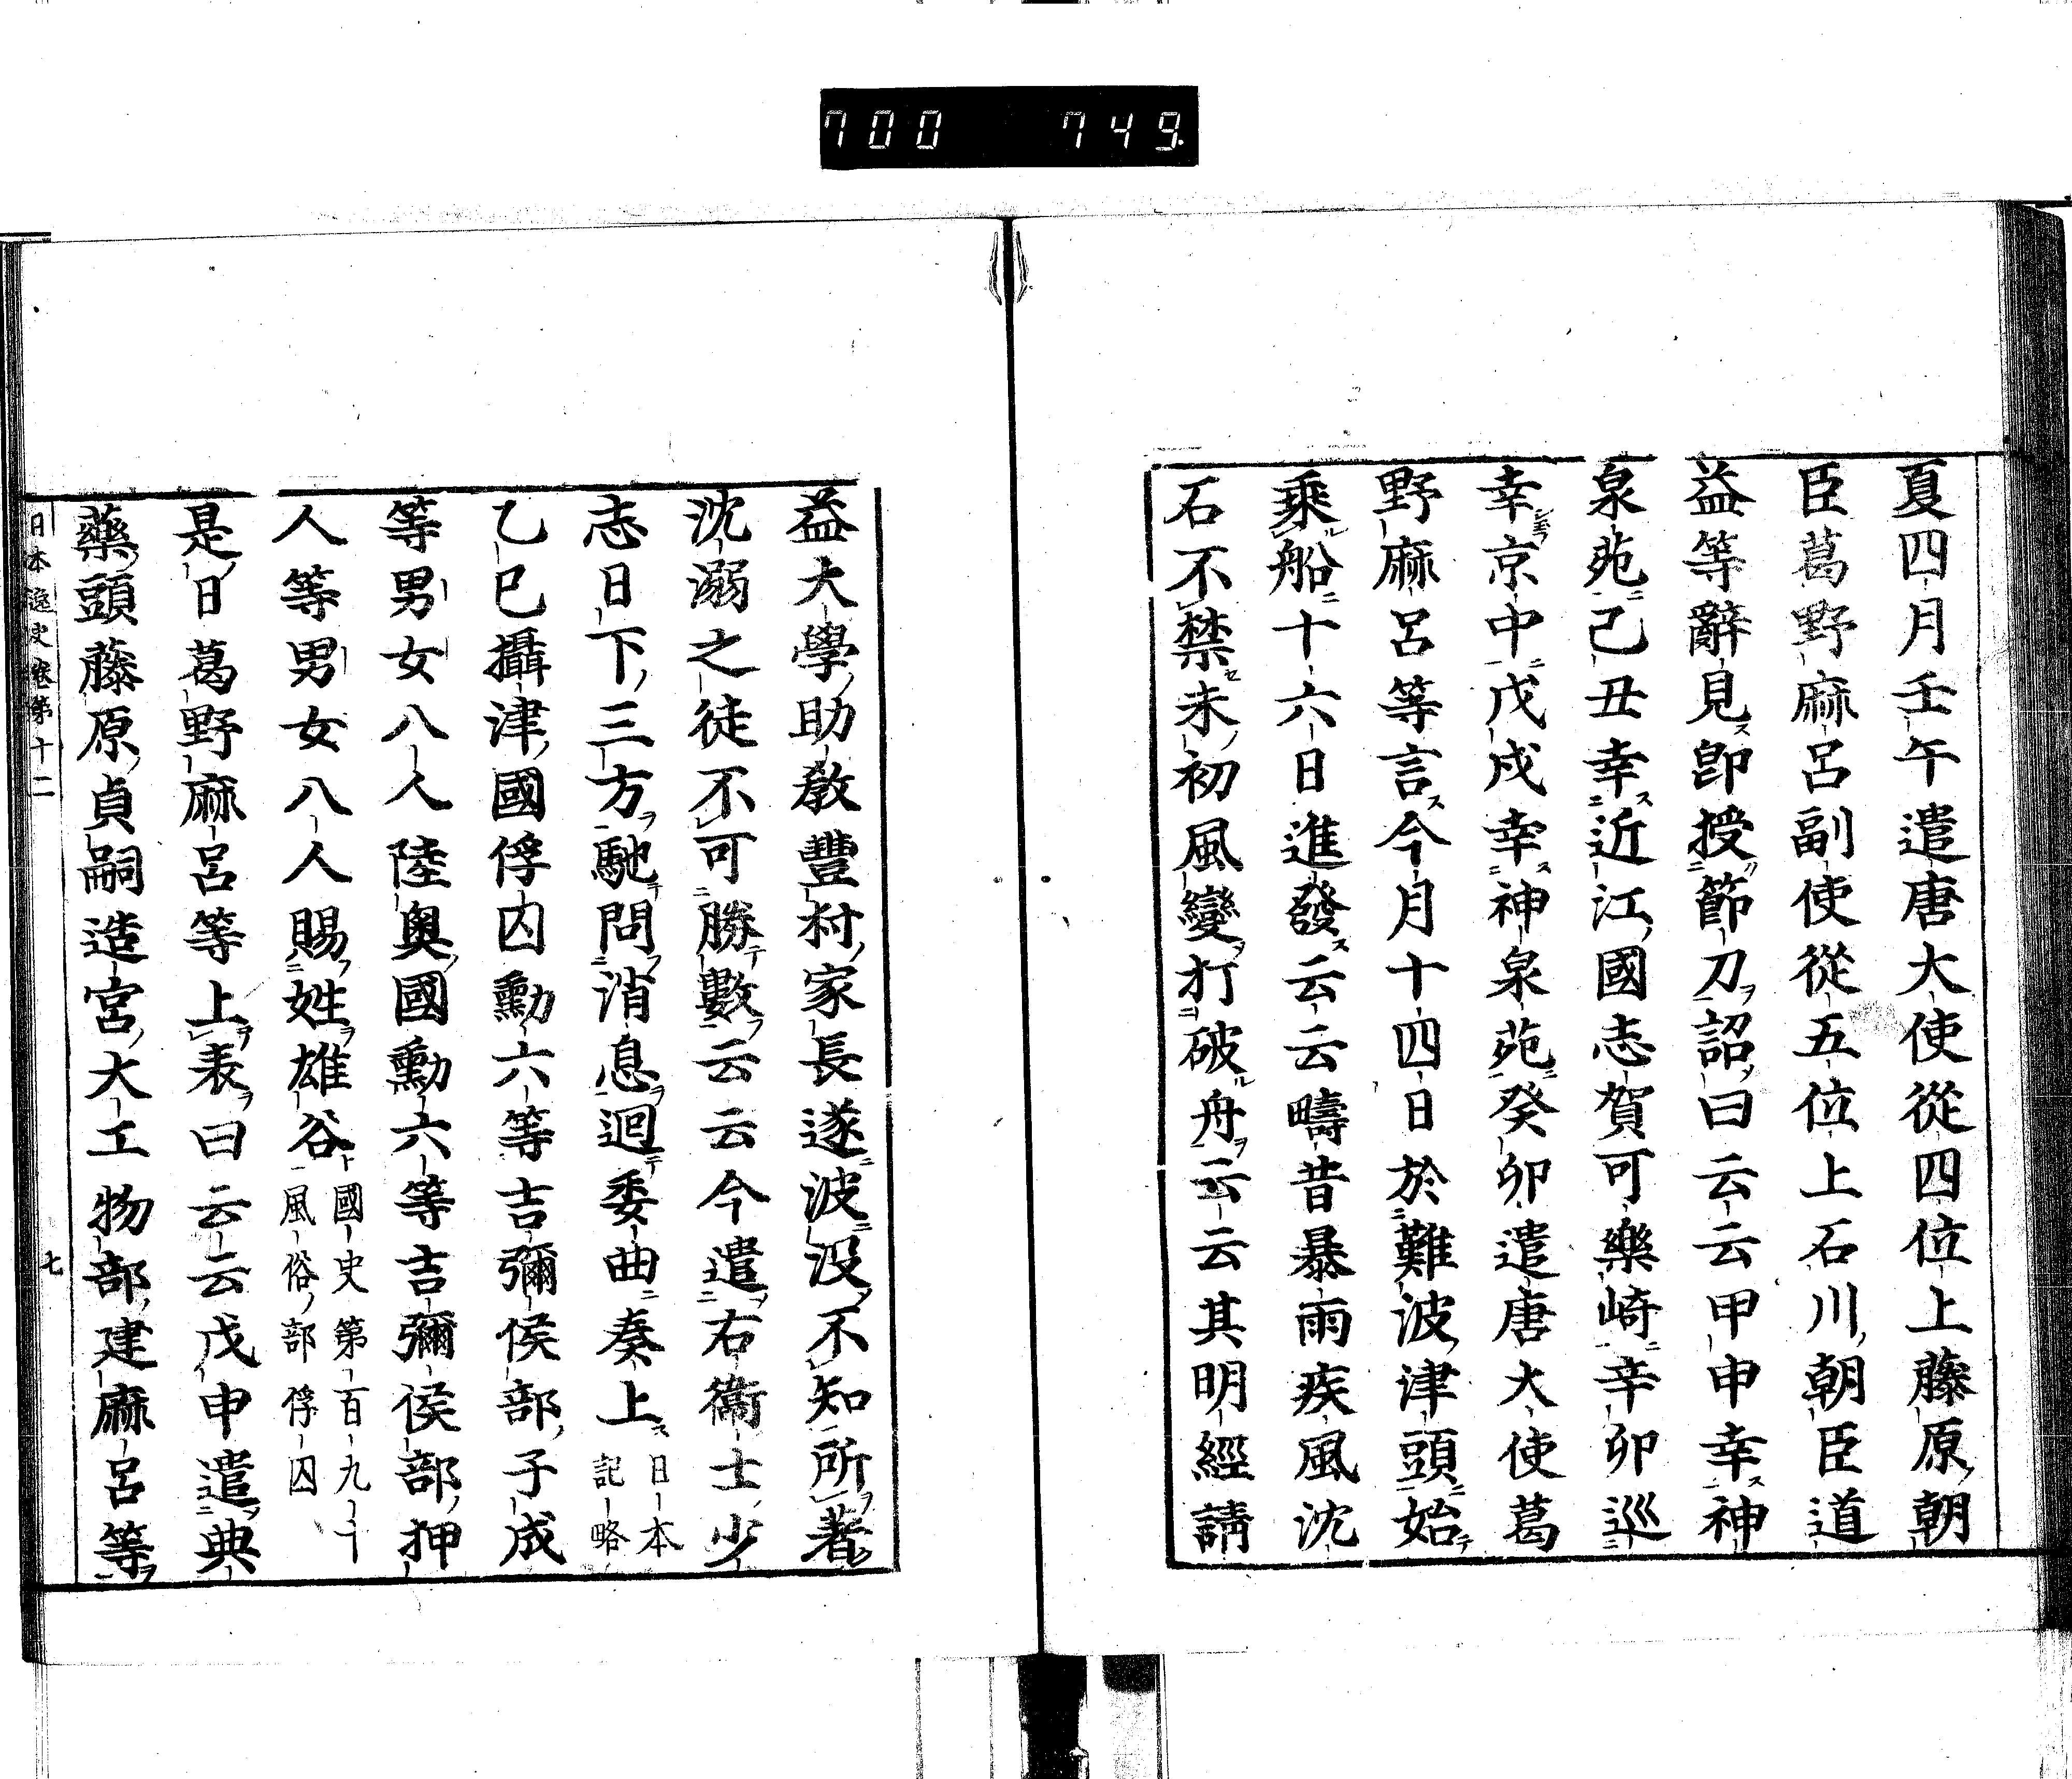 700 749.
夏四月壬午遣唐大使從四位上藤原朝
臣葛野麻呂副使從五位上石川朝臣道
益等辭見即授節刀詔曰云云甲申幸神
泉苑己丑幸近江國志賀可樂崎辛卯巡
幸京中戊戌幸神泉苑癸卯遣唐大使葛
野麻呂等言今月十四日於難波津頭始
乘船十六日進發云云疇昔暴雨疾風沈
石不禁未初風變打破舟云云其明經請
益大學助教豐村家長遂波没不知所著
沈溺之徒不可勝數云云今遣右衞士少
志日下三方馳問消息迴委曲奏上日本
記略
乙巳攝津國俘囚勳六等吉彌侯部子成
等男女八人陸奥國勳六等吉彌侯部押
人等男女八人賜姓雄谷國史第百九十
風俗部俘囚
是日葛野麻呂等上表曰云云戊申遣典
藥頭藤原貞嗣造宮大工物部建麻呂等
日本逸史卷第十二 七